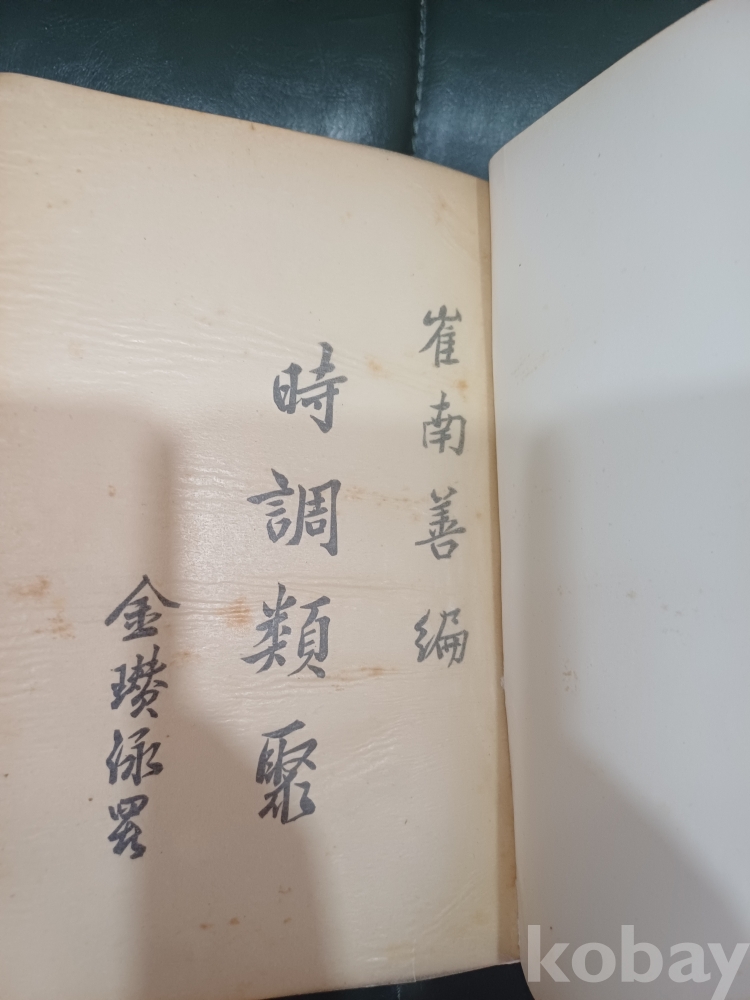 崔南善編
時調類聚
金瓚泳
kobay